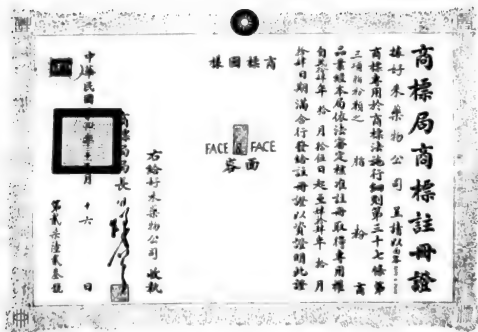 商標局商標註冊證
據好來藥物公司呈請以面容
商標專用於商標法施行細則第三十七條第
三項脂粉類之脂粉商
品業經本局依法審定核准註冊取得專用權
自 年拾月拾伍日起至 年拾月
拾肆日期滿合行發給註冊證以資證明此證
商標圖樣
FACE FACE
面容
右給好來藥物公司收執
商標局局長
中華民國 月十六日
第貳柒陸貳叁號